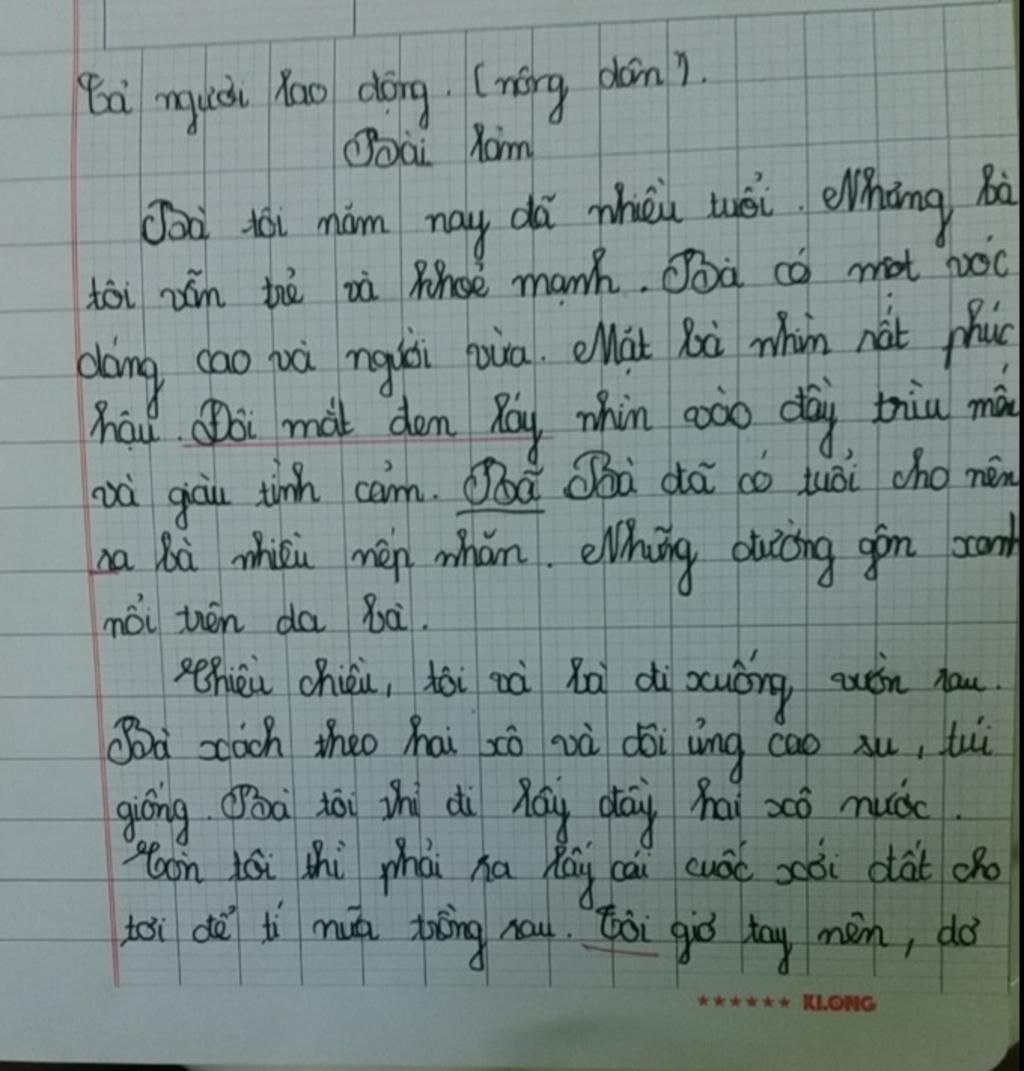 Tả người lao động. (nông dân).
Bài làm
Bà tôi năm nay đã nhiều tuổi. Nhưng bà
tôi vẫn trẻ và khoẻ mạnh. Bà có một vóc
dáng cao và người vừa. Mặt bà nhìn rất phúc
hậu. Đôi mắt đen láy nhìn vào đầy trìu mến
và giàu tình cảm. Bã Bà đã có tuổi cho nên
ra bà nhiều nếp nhăn. Những đường gôn xanh
nổi trên da bà.
Chiều chiều, tôi và bà đi xuống vườn rau.
Bà xách theo hai xô và đôi ủng cao su, túi
giống. Bà tôi thì đi lấy đầy hai xô nước.
Còn tôi thì phải ra lấy cái cuốc xới đất cho
tơi để tí nữa trồng rau. Tôi giơ tay nên, dơ
****** KLONG